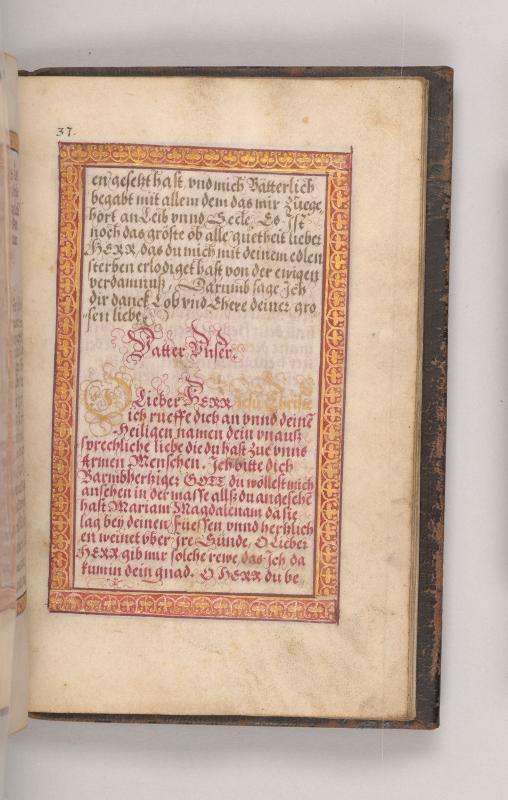 37.
en gesetzt hast, vnd mich Vätterlich
begabt mit allem dem das mir zuege,
hört an Leib vnnd Seele, Es ist
noch das gröste ob alle guetheit lieber
HERR, das du mich mit deinem edlen
sterben erlediget hast von der ewigen
verdamnuß, Darumb sage Ich
dir danck Lob vnd Ehere deiner gro
sen liebe.
Vatter Vnser.
O Lieber HERR Jesu Christe
ich rueffe dich an vnnd deinē
Heiligen namen dein vnauß
sprechliche liebe die du hast zue vnns
Armen Menschen. Ich bitte dich
Barmhertziger GOTT du wöllest mich
ansehen in der masse allß du angesehē
hast Mariam Magdalenam da sie
lag bey deinen Füessen vnnd hertzlich
en weinet vber Jre Sünde, O Lieber
HERR gib mir solche rewe das Ich da
kumm dein gnad. O HERR du be